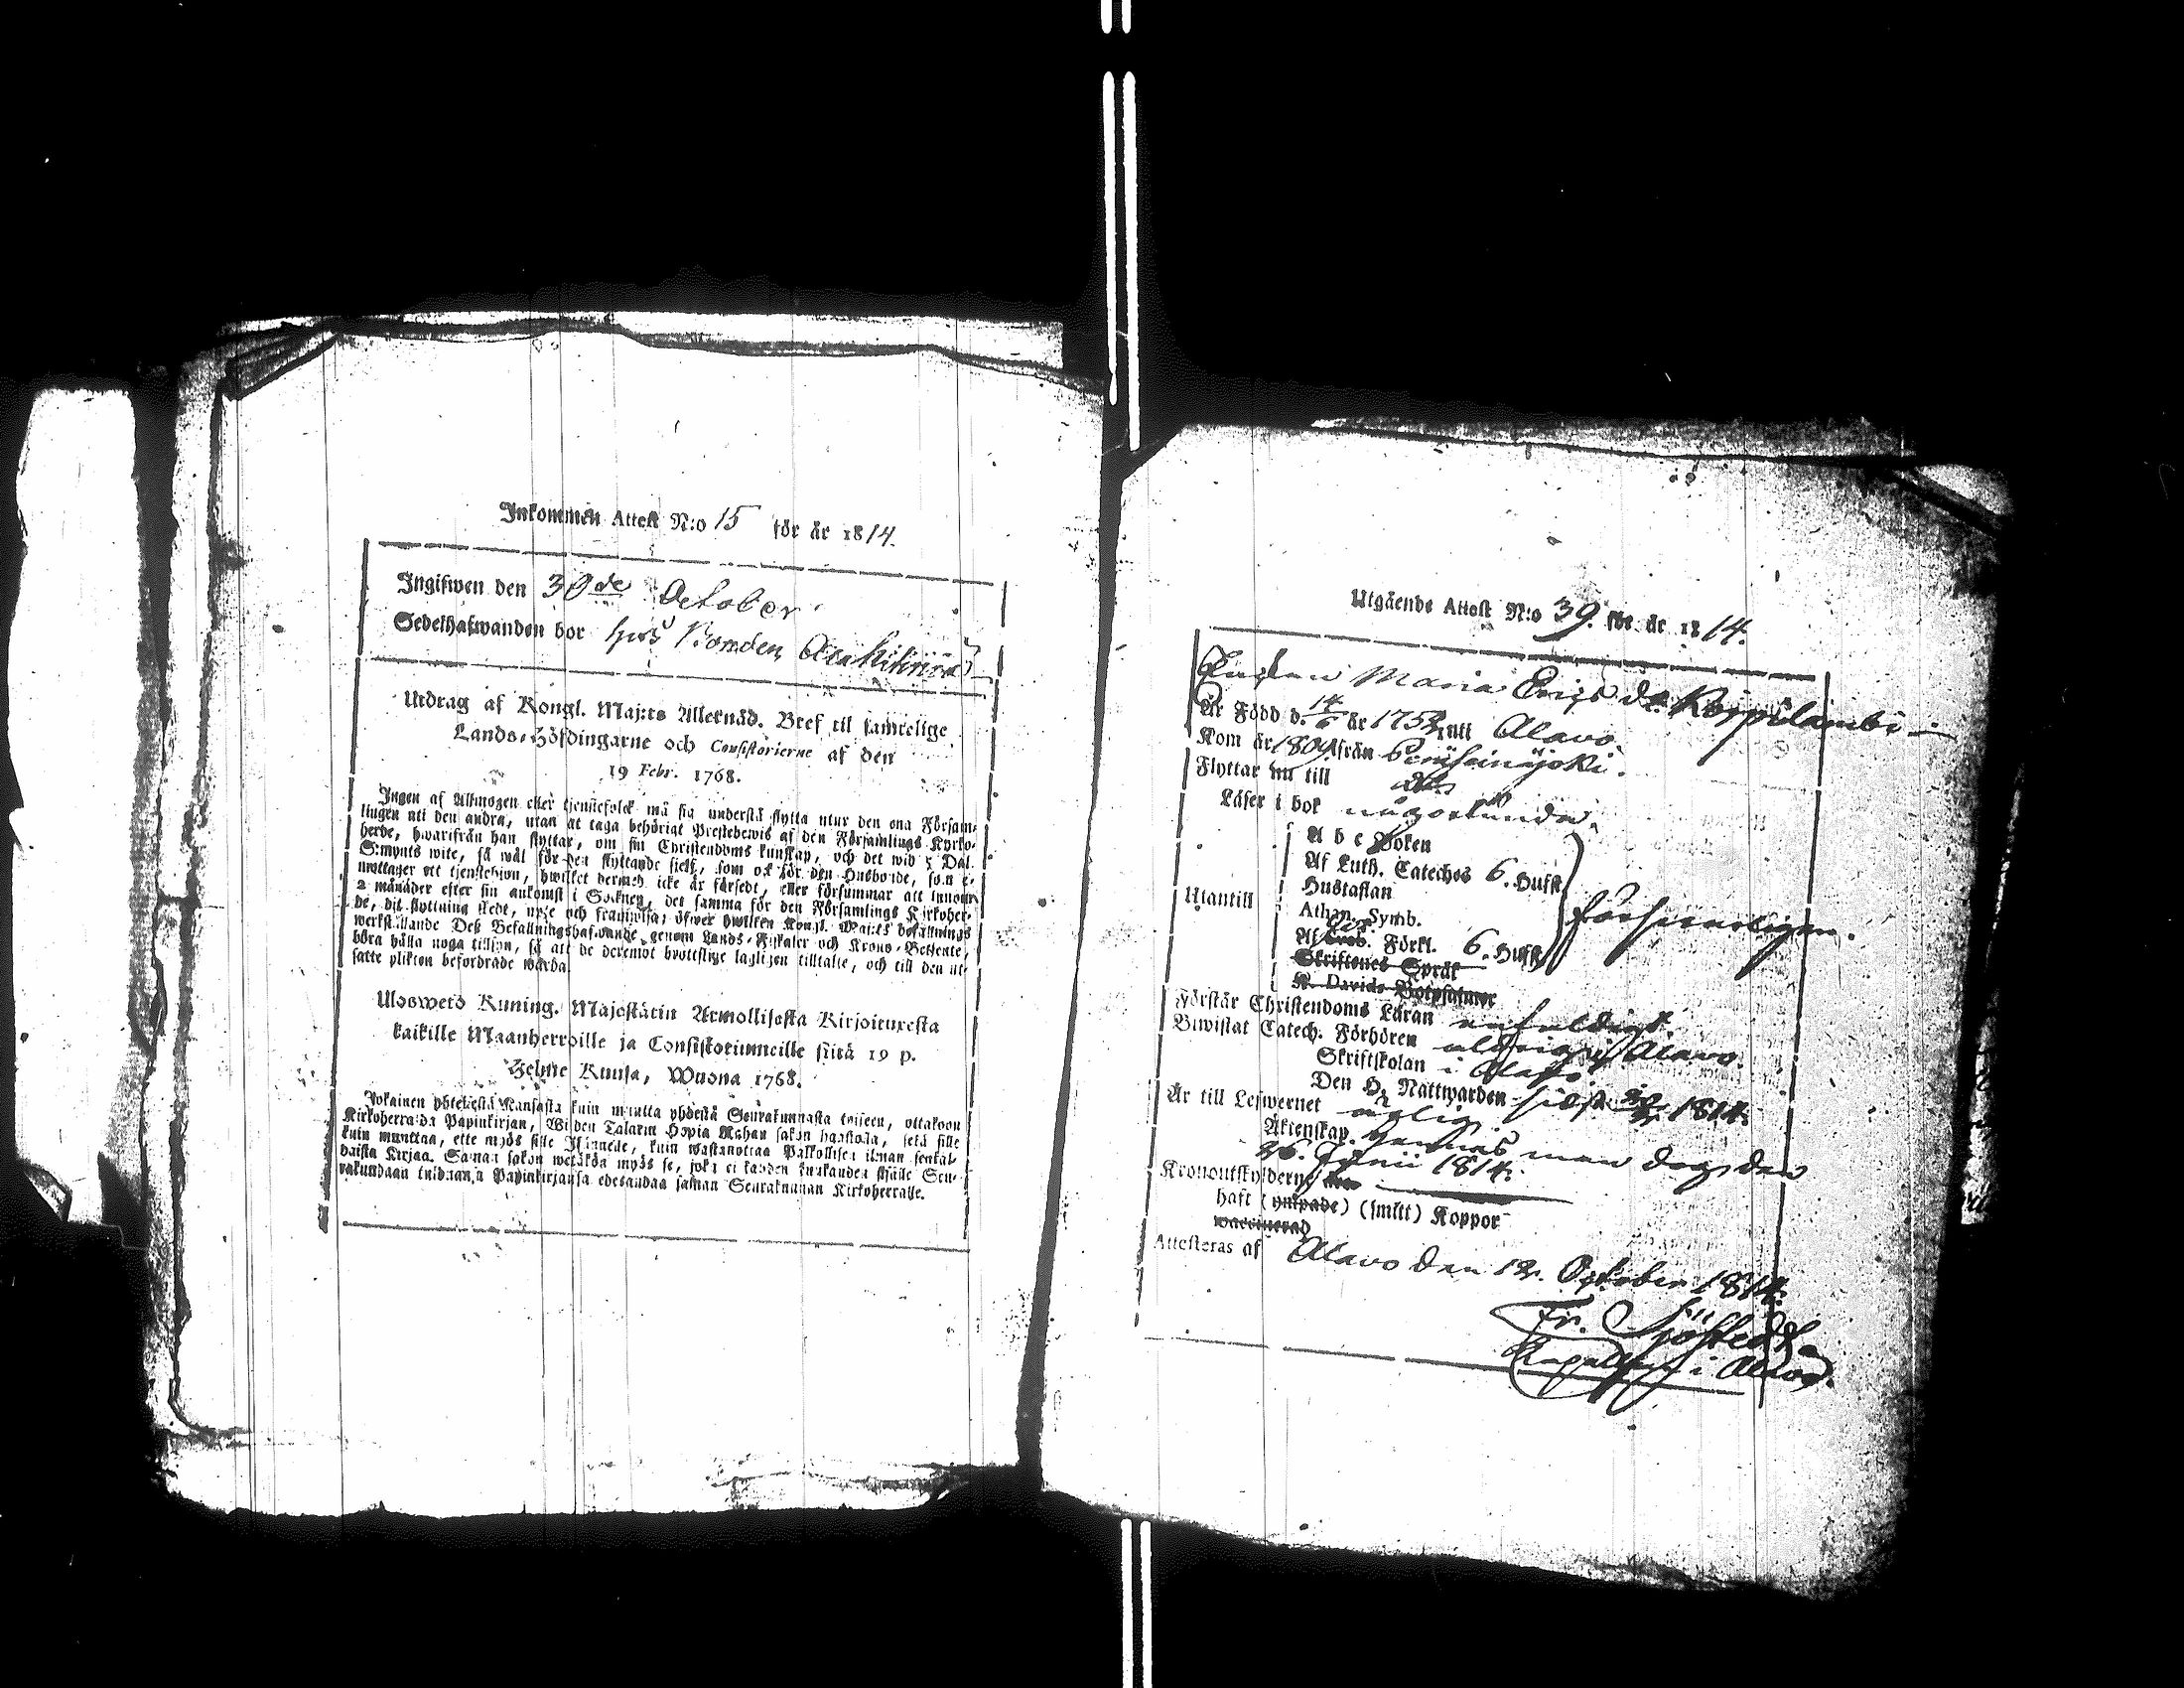 Inkommen Attest N:o 15 för år 1814.
Ingifwen den 30de October
Sedelhafwanden bor hos Bonden
Utdrag af Kongl. Maj:ts Allernåd. Bref til samtelige
Lands-Höfdingarne och Consistorierne af den
19 Febr. 1768.
Ingen af Allmogen eller tjenstefolck må sig understå flytta utur den ena Försam-
lingen uti den andra, utan at taga behörigt Prestebewis af den Församlings Kyrko-
herde, hwarifrån han flyttar, om sin Christendoms kunskap, och det wid 5 Dal.
S:mynts wite, så wäl för den flyttande sielf, som ock för den Husbonde, som e-
mottager ett tjenstehjon, hwilket dermed icke är försedt, eller försummar att innom
2 månader efter sin ankomst i Socknen, det samma för den Församlings Kirkoher-
de, dit flyttning skedt, upte och framwisa; öfwer hwilken Kongl. Maj:ts befallnings
werkställande Deß Befallningshafwande genom Lands-Fiskaler och Krono-Betjente,
böra hålla noga tillsyn, så att de deremot brottslige lagligen tilltalte, och till den ut-
satte plikten befordrade warda.
Ulosweto Kuning. Majestätin Armollisesta Kirjoituxesta
kaikille Maanherroille ja Consistoriumeille siitä 19 p.
Helme Kuusa, Wuonna 1768.
Jokainen yhteisestä Kansasta kuin muutta yhdestä Seurakunnasta toiseen, ottakoon
Kirkoherralda Papinkirjan, Wiiden Talarin Hopia Rahan sakon haastolla, sekä sille
kuin muuttaa, ette myös sille Isännelle, kuin wastanottaa Palkollisen ilman senkal-
daista Kirjaa. Saman sakon wetäköä myös se, joka ei kahden kuukauden sisälle Seu-
rakundaan tulduansa Papinkirjansa edesandaa saman Seurakunnan Kirkoherralle.
Utgående Attest N:o 39. för år 1814.
Enkan Maria Erics dr
Är Född d. 14/6 år 1752 uti Alavo
Kom år 1804 från Peräseinäjoki.
Flyttar nu till do
Läser i bok någorlunda.
Utantill
A b c Boken
Af Luth. Cateches 6. Hufst
Hustaflan
Athan. Symb.
Af Förkl. 6. Hufst
Skriftenes Språk
K. Davids Botpsalmer
försvarligen.
Förstår Christendoms Läran enfaldigt.
Biwistat Catech. Förhören aldrig i Alavo.
Skriftskolan i Alavo
Den H. Nattwarden sidst 1814.
Är till Lefwernet
Äktenskap. hennes man dog den
26. Junii 1814.
Kronoutskylderne
haft (ympade) (smitt) Koppor
waccinerad
Attesteras af Alavo den 12. October 1814.
Fr.
Kapellan i Alavo.